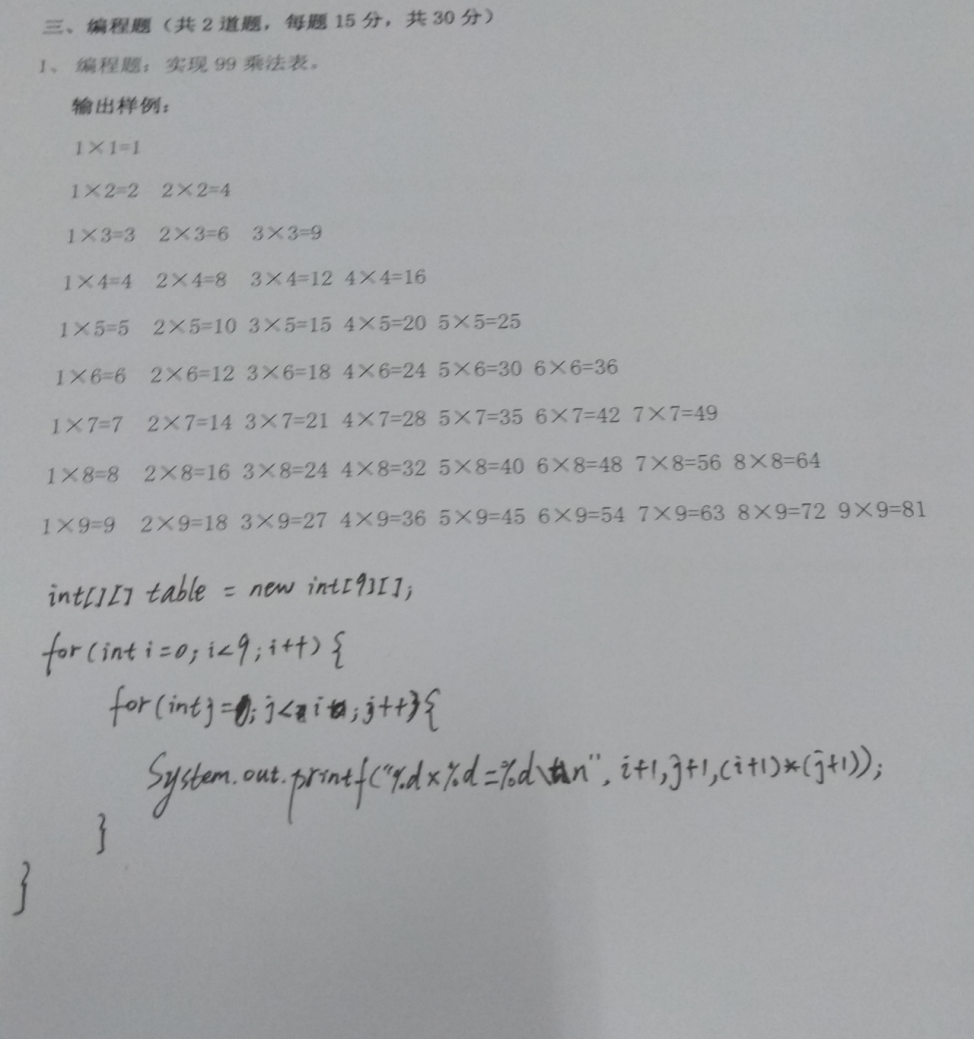 三、编程题（共 2 道题，每题 15 分，共 30 分）
1、 编程题：实现 99 乘法表。
输出样例：
1×1=1
1×2=2 2×2=4
1×3=3 2×3=6 3×3=9
1×4=4 2×4=8 3×4=12 4×4=16
1×5=5 2×5=10 3×5=15 4×5=20 5×5=25
1×6=6 2×6=12 3×6=18 4×6=24 5×6=30 6×6=36
1×7=7 2×7=14 3×7=21 4×7=28 5×7=35 6×7=42 7×7=49
1×8=8 2×8=16 3×8=24 4×8=32 5×8=40 6×8=48 7×8=56 8×8=64
1×9=9 2×9=18 3×9=27 4×9=36 5×9=45 6×9=54 7×9=63 8×9=72 9×9=81
int[][] table = new int[9][];
for(int i=0; i<9; i++) {
for(int j=0; j<i; j++){
System.out.printf("%d×%d=%d\n", i+1, j+1, (i+1)*(j+1));
}
}